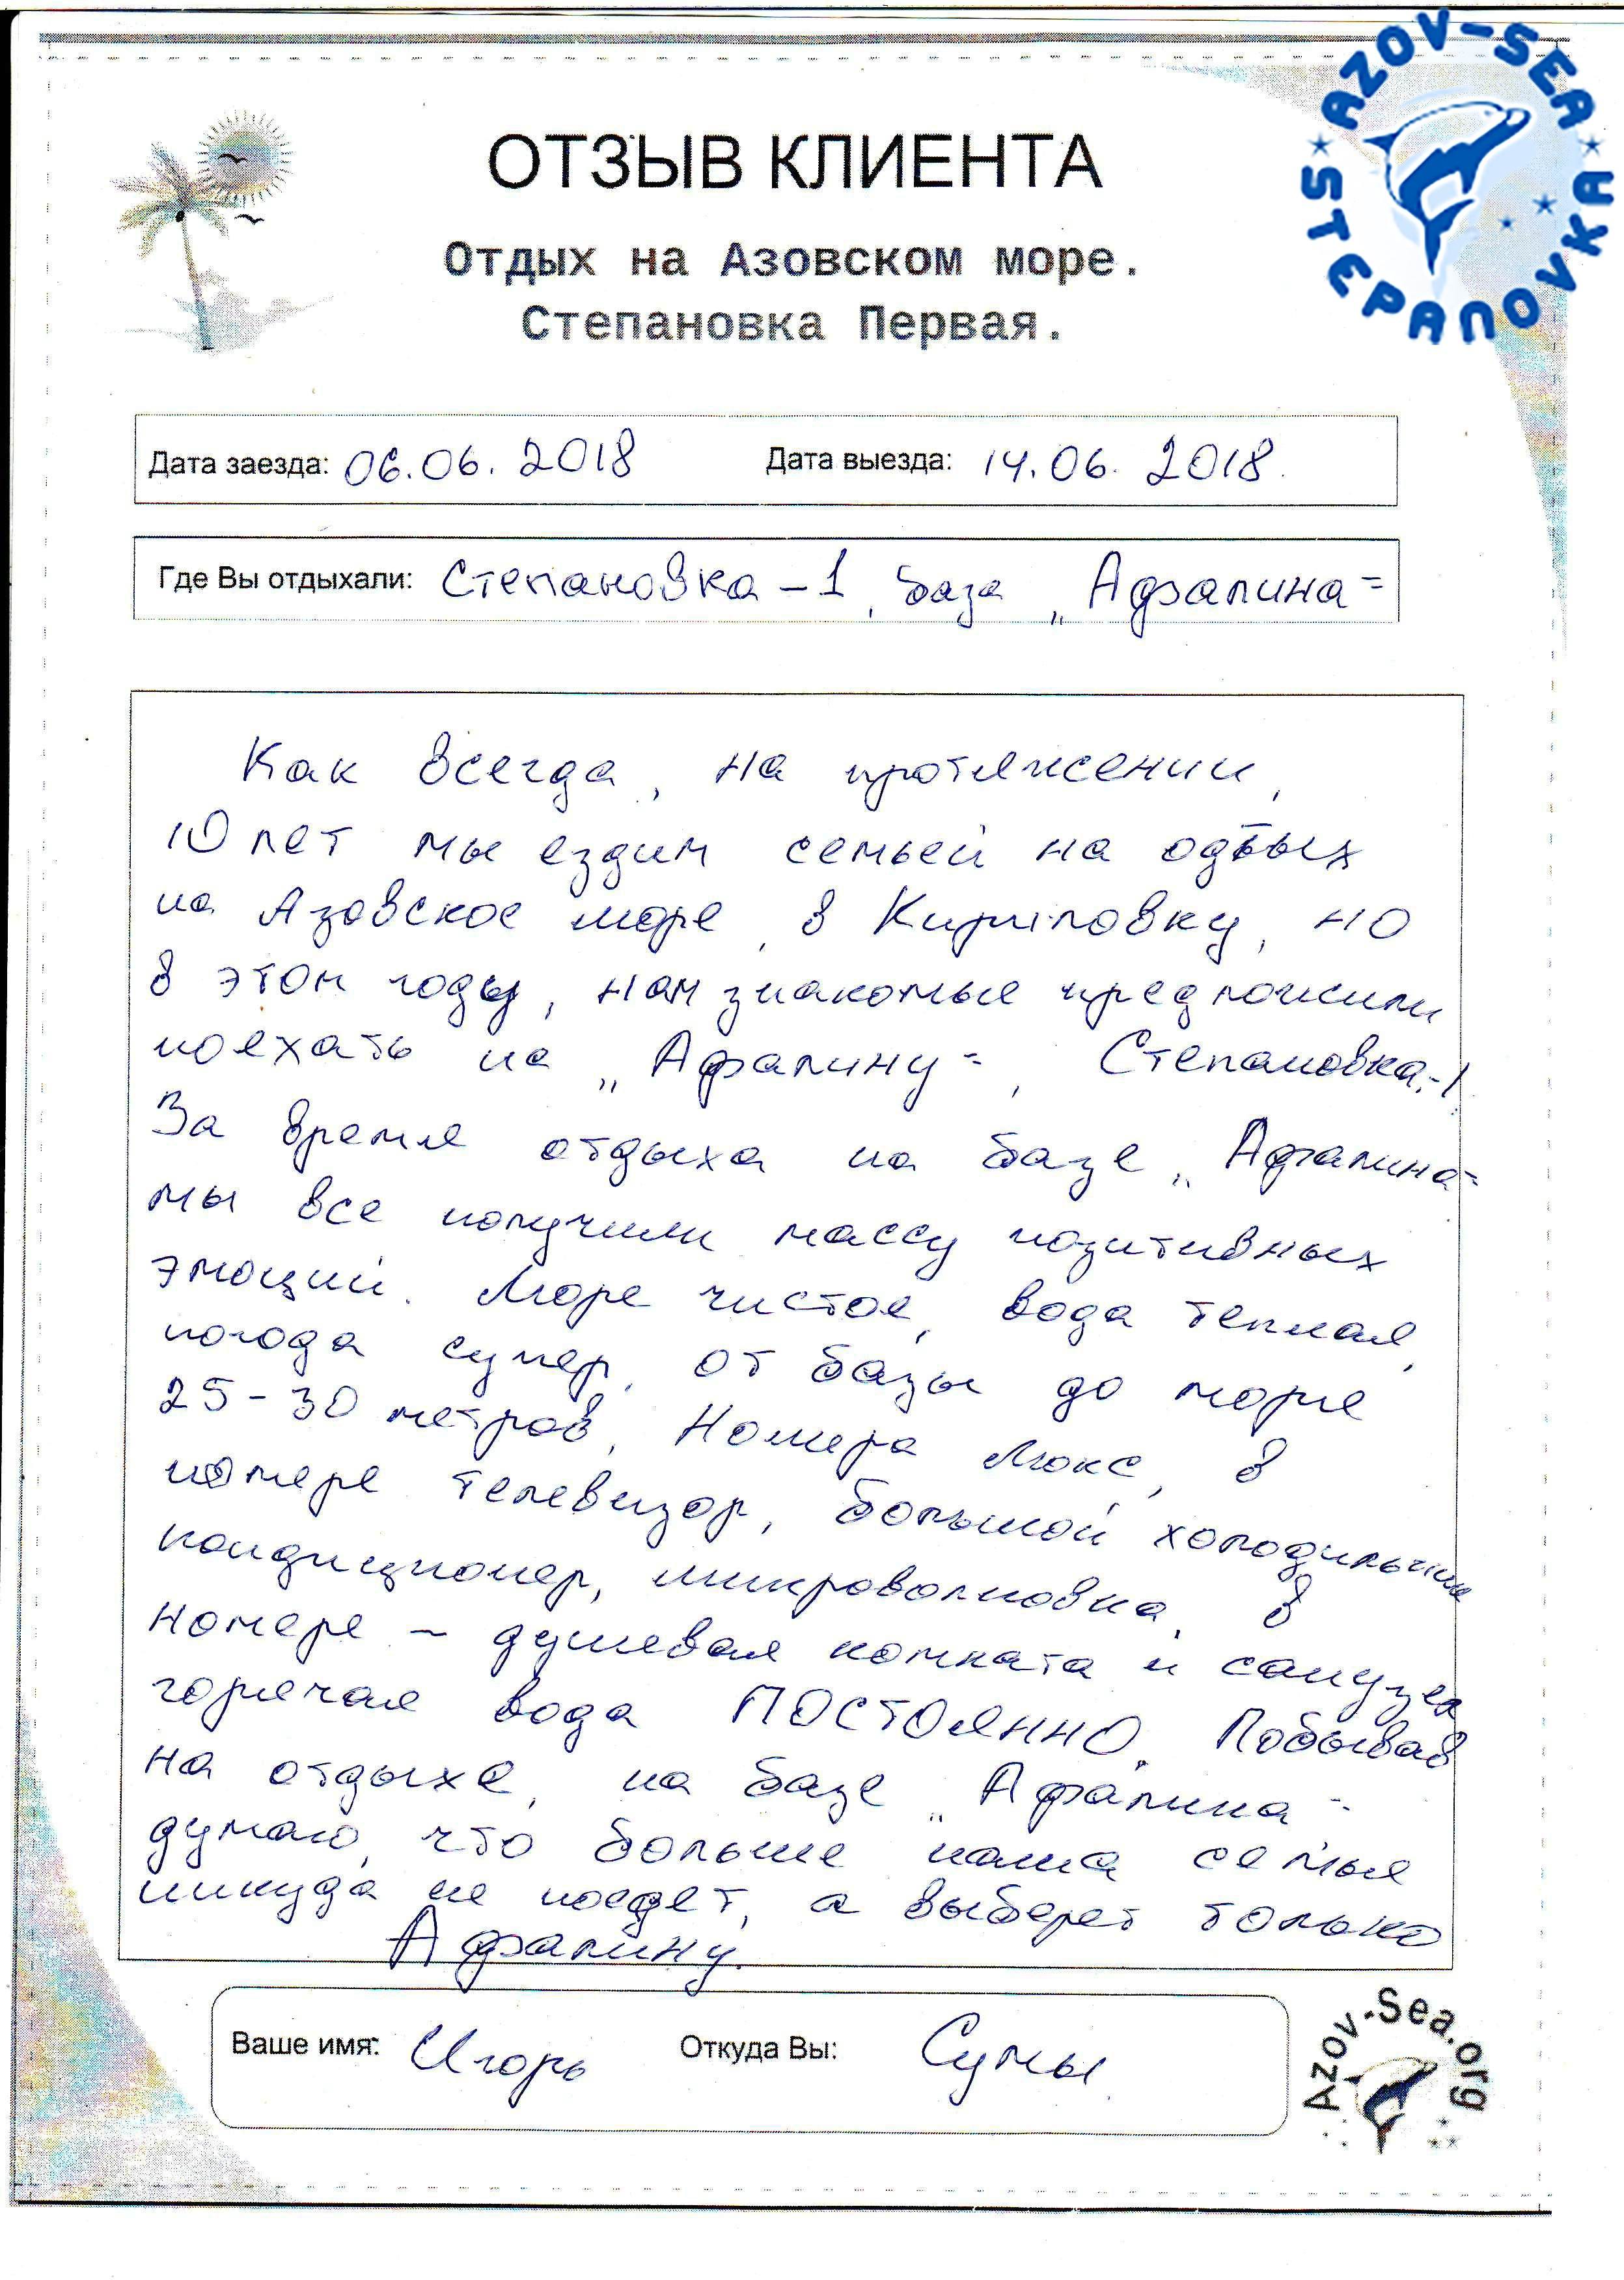 AZOV-SEA
STEPANOVKA
ОТЗЫВ КЛИЕНТА
Отдых на Азовском море.
Степановка Первая.
Дата заезда: 06.06. 2018 Дата выезда: 14.06. 2018.
Где Вы отдыхали: Степановка-1, база „Афалина"
Как всегда, на протяжении,
10 лет мы ездим семьей на одтых
на Азовское море, в Кирилловку, но
в этом году, нам знакомые предложили
поехать на „Афалину", Степановка-1
За время отдыха на базе „Афалина"
мы все получили массу позитивных
эмоций. Море чистое, вода теплая,
погода супер, от базы до моря
25-30 метров, Номера люкс, в
номере телевизор, большой холодильник
кондиционер, микроволновка, в
номере - душевая комната и санузел
горячая вода ПОСТОЯННО. Побывав
на отдыхе, на базе „Афалина"
думаю, что больше наша семья
никуда не поедет, а выберет только
Афалину.
Ваше имя: Игорь Откуда Вы: Сумы
Azov-Sea.org